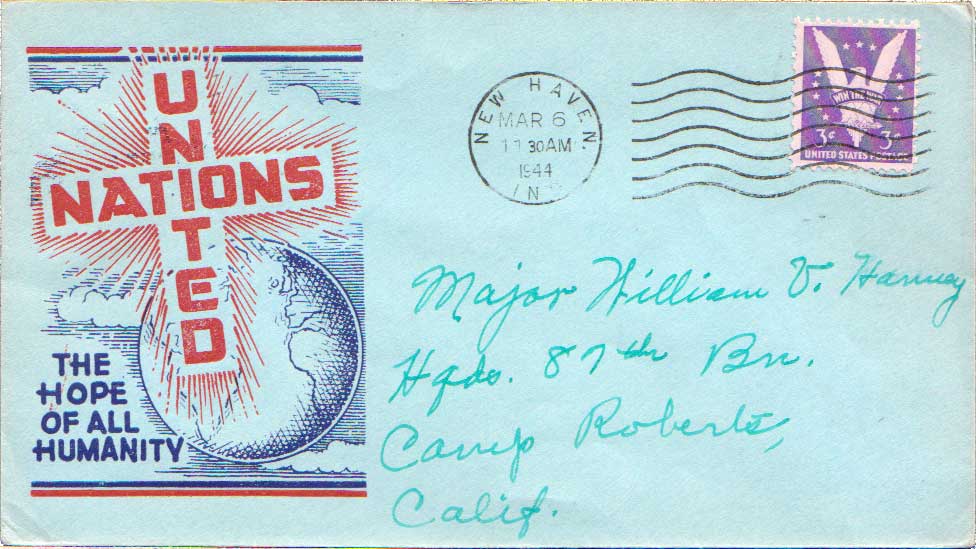 UNITED
NATIONS
THE
HOPE
OF ALL
HUMANITY
NEW HAVEN.
MAR 6
11 30AM
1944
WIN THE WAR
3¢ 3¢
UNITED STATES POSTAGE
Major William V.
Hqds. 87th Bn.
Camp Roberts,
Calif.